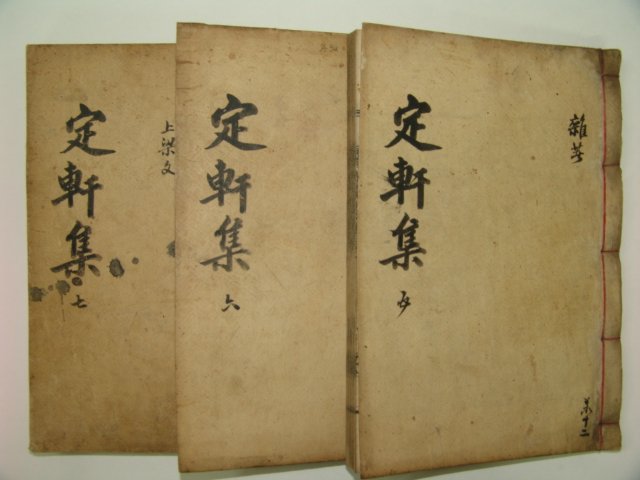 雜著
共十二
定軒集
五
定軒集
六
上梁文
定軒集
七